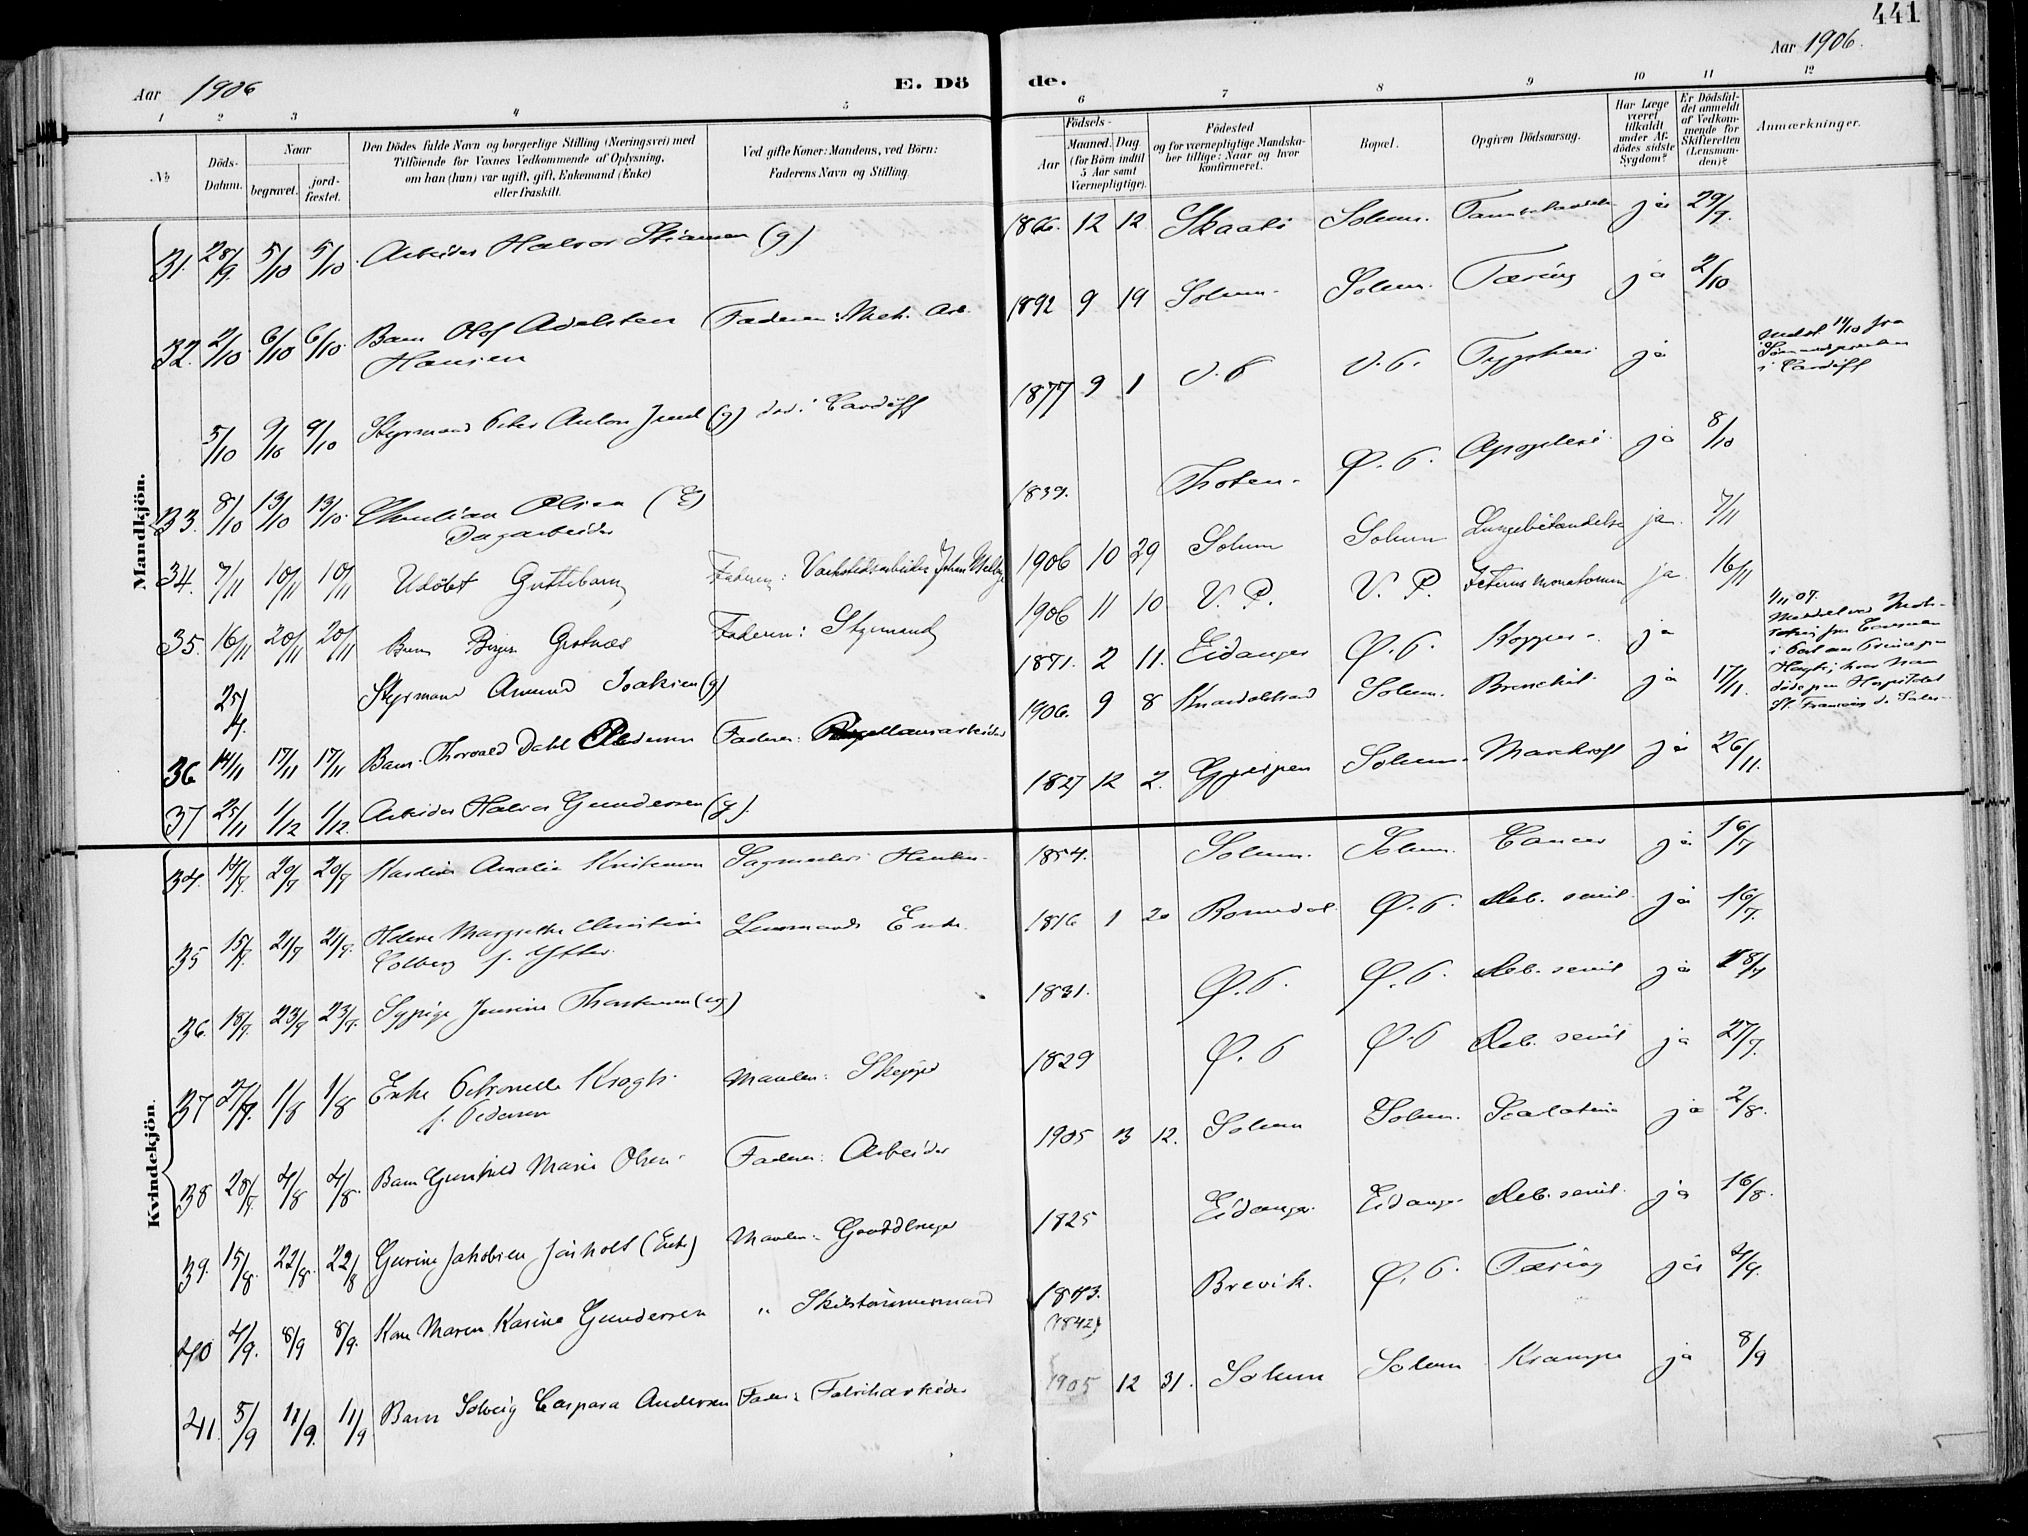 441
Aar 1906
E. Dö
de.
Aar 1906.
1 2 3 4 5 6 7 8 9 10 11 12
No
Döds-Datum.
Naar
begravet.
jord-fæstet.
Den Dödes fulde Navn og borgerlige Stilling (Næringsvei) med
Tilföiende for Voxnes Vedkommende af Oplysning,
om han (hun) var ugift, gift, Enkemand (Enke)
eller fraskilt.
Ved gifte Koner: Mandens, ved Börn:
Faderens Navn og Stilling.
Födsels-
Aar
Maaned. Dag
(for Börn indtil
5 Aar samt
Værnepligtige).
Födested
og for værnepligtige Mandska-
ber tillige: Naar og hvor
konfirmeret.
Bopæl.
Opgiven Dödsaarsag.
Har Læge
været
tilkaldt
under Af-
dödes sidste
Sygdom?
Er Dödsfal-
det anmeldt
af Vedkom-
mende for
Skifteretten
(Lensman-
den)?
Anmærkninger.
Mandkjön.
31. 28/9. 5/10 5/10. Arbeider Halvor (g) 1866. 12 12 Solum. ja 29/9.
32. 2/10. 6/10 6/10. Barn Olof Adelsten Faderen: Mek. Arb. 1892 9 19 Solum. Solum. Tæring ja 2/10
Hansen
5/10 9/10 9/10 Styrmand Peter Anton Juel (g) död i Cardiff 1877 9 1 V. P. V. P. ja
i Cardiff
33. 8/10 13/10 13/10. Olsen (E) 1839. Thoten. Ø. P. Apoplexi ja 8/10
Dagarbeider
34. 7/11 10/11 10/11 Udöbt Guttebarn Faderen: Johan 1906 10 29 Solum Solum Lungebetændelse ja. 7/11
35. 16/11 20/11 20/11 Barn Birger Faderen: Styrmand 1906 11 10. V. P. V. P. Icterus neonatorum ja. 16/11
25/4. Styrmand Amund Isaksen (g) 1871. 2 11. Eidanger Ø. P. Kopper. ja
36 14/11 17/11 17/11 Barn Thorvald Dahl Pedersen Faderen: 1906. 9 8 Knardalstrand Solum. Bronchit. ja 17/11.
37 25/11 1/12 1/12. Arbeider Halvor Gundersen (g). 1827 12 2. Gjerpen Solum. ja 26/11.
Kvindekjön.
34. 14/7. 20/7 20/7 Amalie Knutsen 1854. Solum. Solum. Cancer ja 16/7
35 15/7. 21/7 21/7. Helene Margrethe Christine Lensmands Enke. 1816 1 20 Romedal. Ø. P. Deb. senil. ja 16/7.
Colberg f.
36. 18/7. 23/7 23/7. Sypige Jensine Thorstensen (ug) 1831. Ø. P. Ø. P. Deb. senil ja 18/7
37 27/7. 1/8 1/8 Enke Petronelle Krogh. Manden: Skipper 1829 Ø. P Ø. P Deb. senil ja 27/7.
f. Pedersen
38 28/7. 4/8 4/8. Barn Gunhild Marie Olsen. Faderen: Arbeider 1905 12. Solum Solum. Scarlatina ja 2/8.
39. 15/8. 22/8. 22/8 Gurine Jakobsen Jönholt (Enke) Manden: Gaardbruger 1825 Eidanger. Eidanger Deb. senil. ja 16/8.
40 4/9. 8/9 8/9. Kone Maren Karine Gundersen " Skibstömmermand 1843. Brevik. Ø. P. Tæring ja 4/9.
(1842)
41. 5/9 11/9. 11/9 Barn Solveig Caspara Andersen Fader: Fabrikarbeider 1905 12 31. Solum Solum Krampe ja 8/9